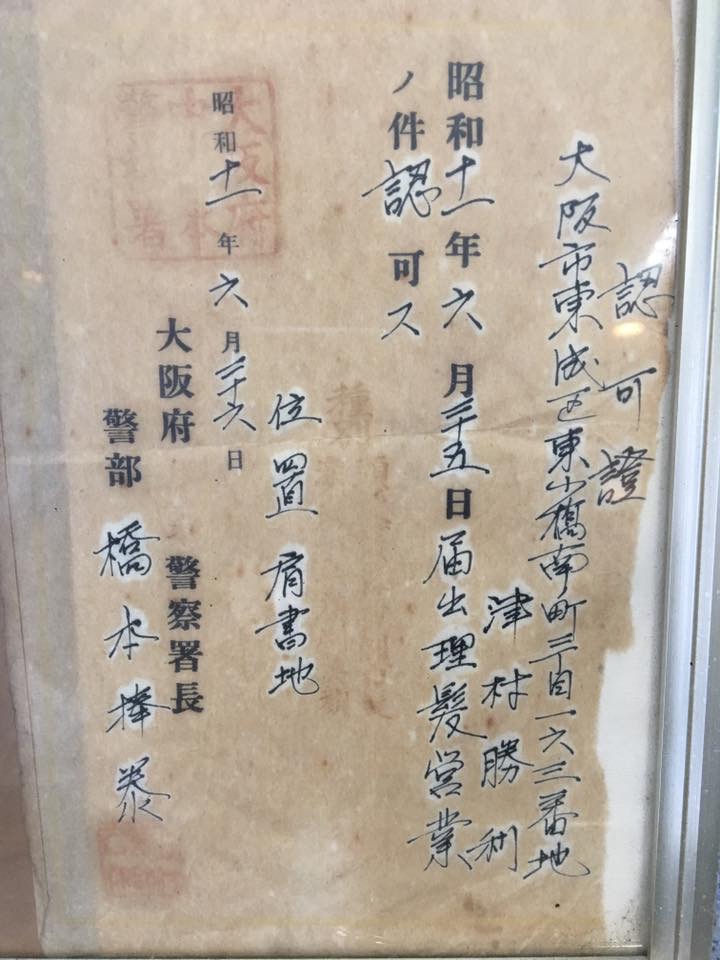 認可證
大阪市東成区東小橋南町三丁目一六三番地
津村勝利
昭和十一年六月二十五日届出理髪営業
ノ件認可ス
位置肩書地
昭和十一年六月二十六日
大阪府 警察署長
警部 橋本